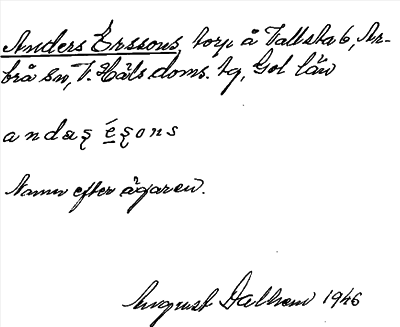 Anders Erssons, torp å Vallsta 6, Ar-
brå sn, V. Häls. doms. tg, Gbl län
andaş éşons
Namn efter ägaren.
August Dalhem 1946